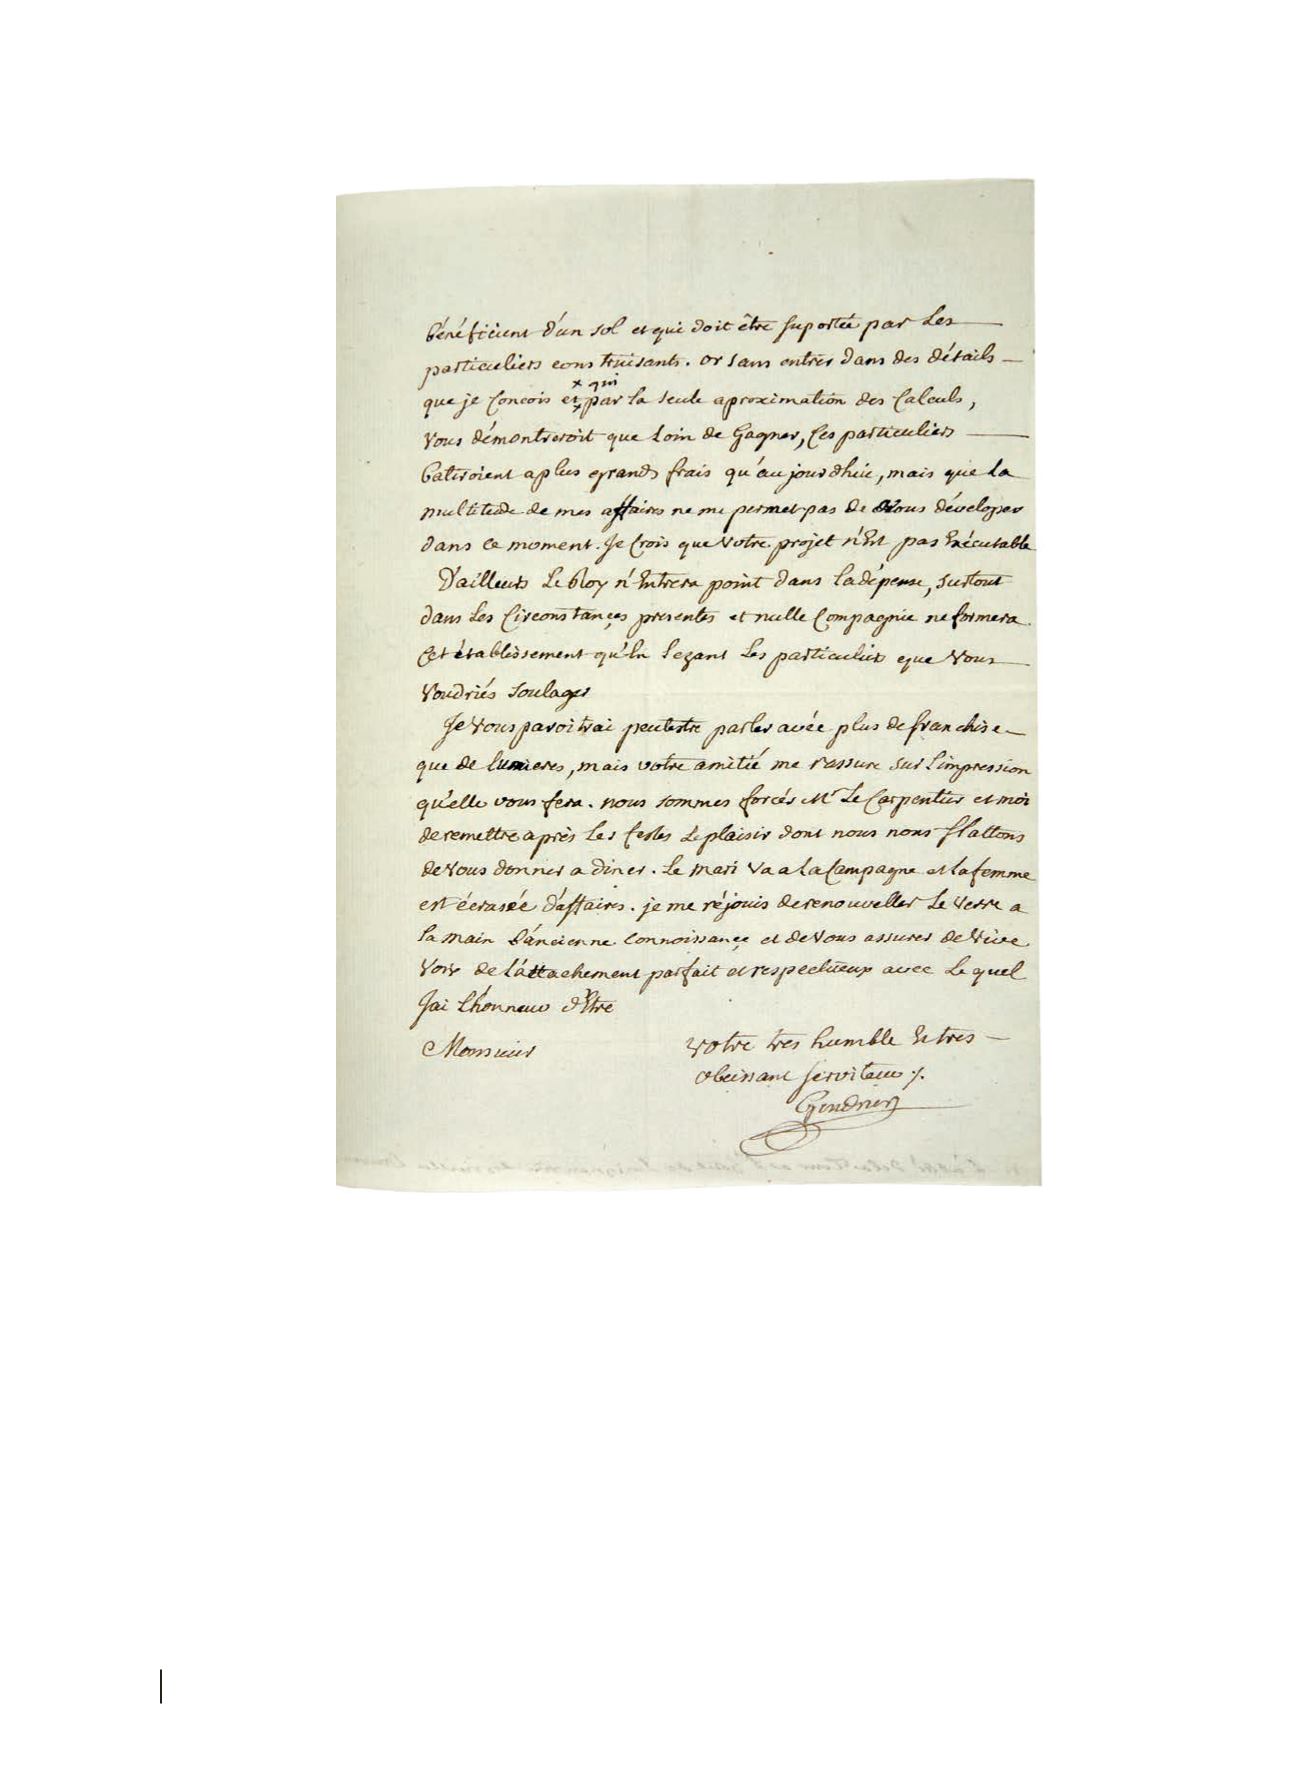 bénéficient d'un sol et qui doit être suportée par Les
particuliers construisants. or sans entrer dans des détails
que je Concois et par la seule aproximation des Calculs,
x qui
Vous démontreroit que Loin de Gagner, Ces particuliers
batiroient a plus grands frais qu'aujourdhui, mais que La
multitude de mes affaires ne me permet pas de Vous déveloper
dans ce moment. Je Crois que Votre projet n'Est pas Exécutable
D'ailleurs Le Roy n'Entrera point dans la dépense, surtout
dans Les Circonstances presentes et nulle Compagnie ne formera
Cet établissement qu'En lezant Les particuliers que Vous
Voudriés soulager
Je Vous paroitrai peutestre parler avec plus de franchise
que de lumieres, mais votre amitié me rassure sur l'impression
qu'elle vous fera. nous sommes forcés Mr Le Carpentier et moi
de remettre après Les festes Le plaisir dont nous nous flattons
de Vous donner a diner. Le mari Va a La Campagne et la femme
est écrasée d'affaires. je me réjouis de renouveller Le Verre a
la main L'ancienne Connoissance et de Vous assurer de Vive
Voix de l'attachement parfait et respectueux avec Le quel
J'ai L'honneur d'Etre
Monsieur
Votre tres humble Et tres
obeissant serviteur
Gendrier